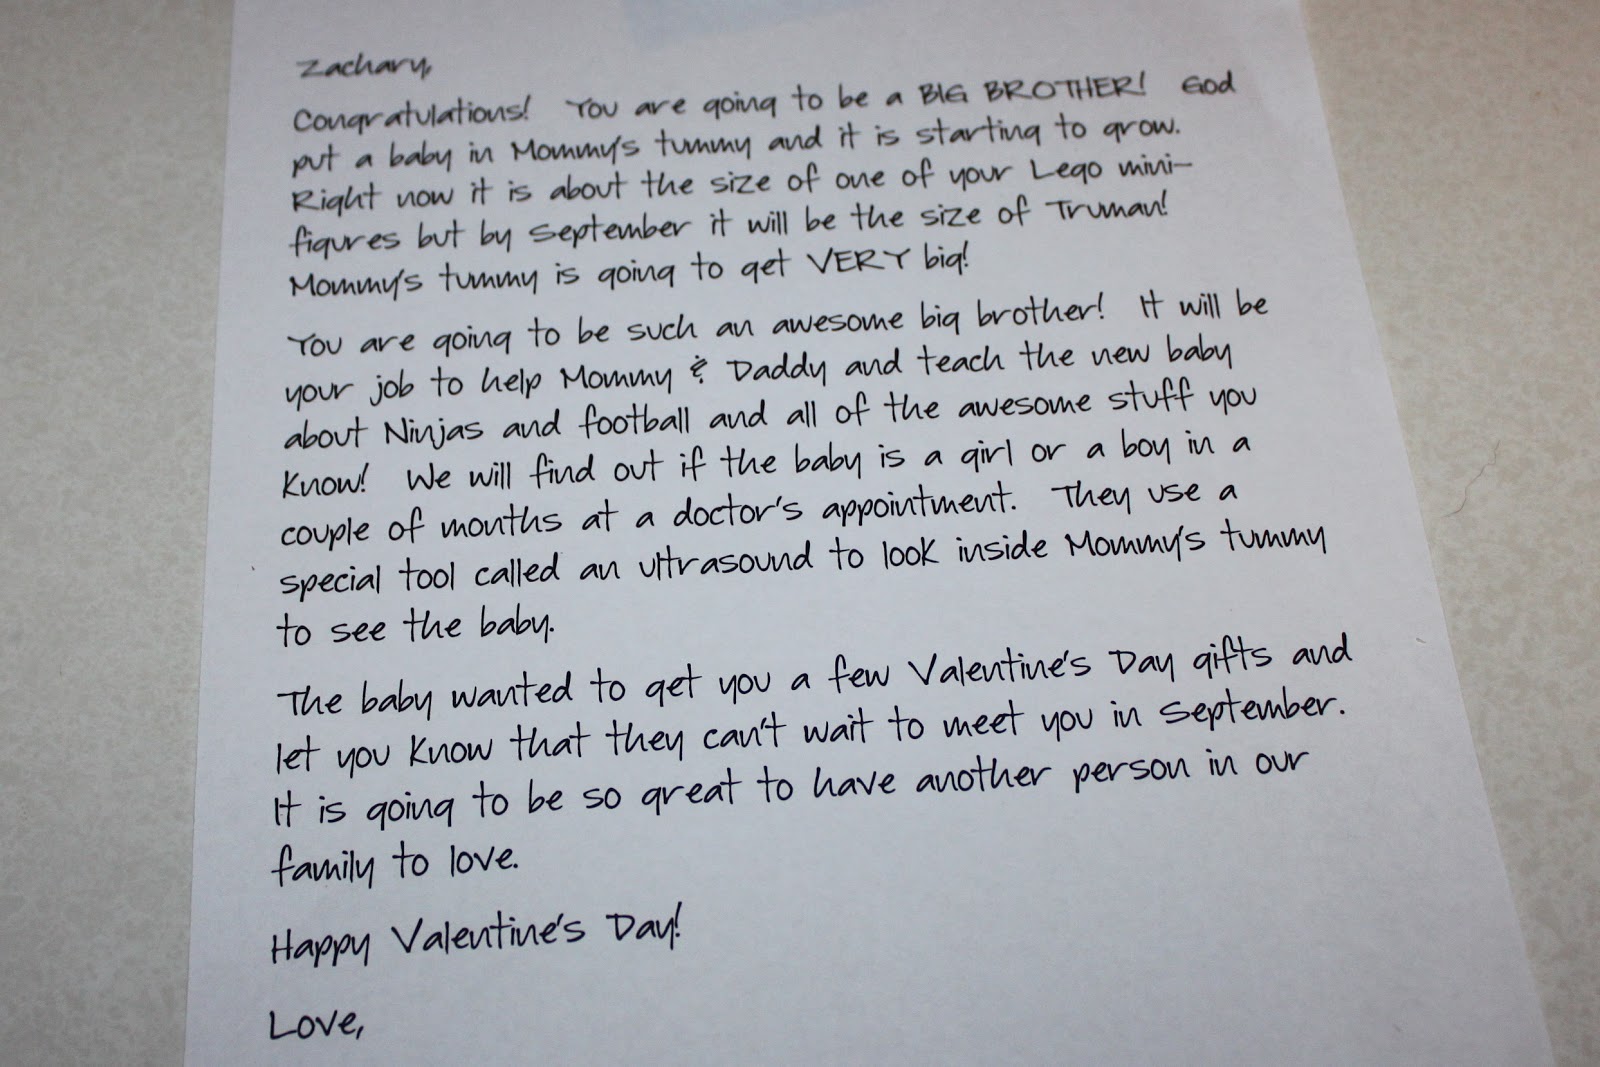 Zachary,
Congratulations! You are going to be a BIG BROTHER! God
put a baby in Mommy's tummy and it is starting to grow.
Right now it is about the size of one of your Lego mini-
figures but by September it will be the size of Truman!
Mommy's tummy is going to get VERY big!
You are going to be such an awesome big brother! It will be
your job to help Mommy & Daddy and teach the new baby
about Ninjas and football and all of the awesome stuff you
know! We will find out if the baby is a girl or a boy in a
couple of months at a doctor's appointment. They use a
special tool called an ultrasound to look inside Mommy's tummy
to see the baby.
The baby wanted to get you a few Valentine's Day gifts and
let you know that they can't wait to meet you in September.
It is going to be so great to have another person in our
family to love.
Happy Valentine's Day!
Love,